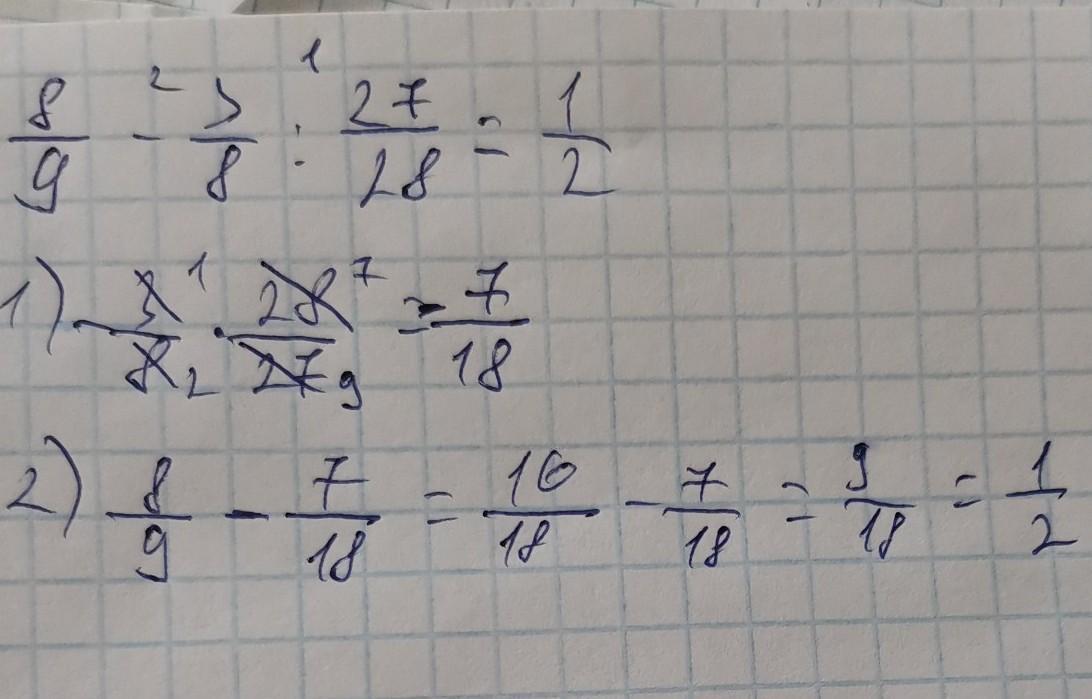 8/9 -² 3/8 :¹ 27/28 = 1/2
1) 3̸¹/8̸₂ · 2̸8̸⁷/2̸7̸₉ = 7/18
2) 8/9 - 7/18 = 16/18 - 7/18 = 9/18 = 1/2